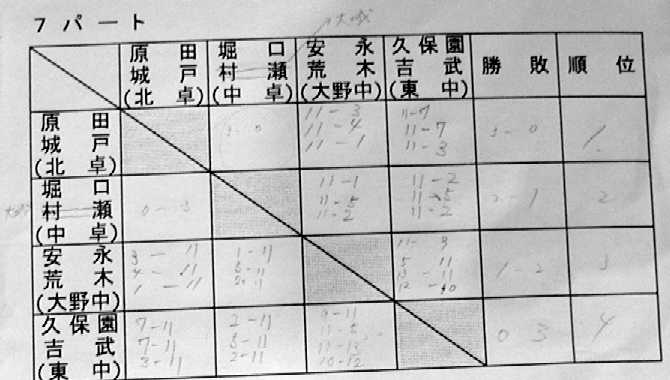 7パート
大城
原田 堀口 安永 久保園
城戸 村瀬 荒木 吉武 勝敗 順位
(北卓) (中卓) (大野中) (東中)
原田 3-0 11-3 11-7 3-0 1
城戸 11-4 11-7
(北卓) 11-1 11-3
堀口 0-3 11-1 11-2 2-1 2
大城 村瀬 11-5 11-5
(中卓) 11-2 11-2
安永 3-11 1-11 11-9 1-2 3
荒木 4-11 5-11 5-11
(大野中) 1-11 2-11 13-11
12-10
久保園 7-11 2-11 9-11 0 3 4
吉武 7-11 5-11 11-5
(東中) 3-11 2-11 11-13
10-12